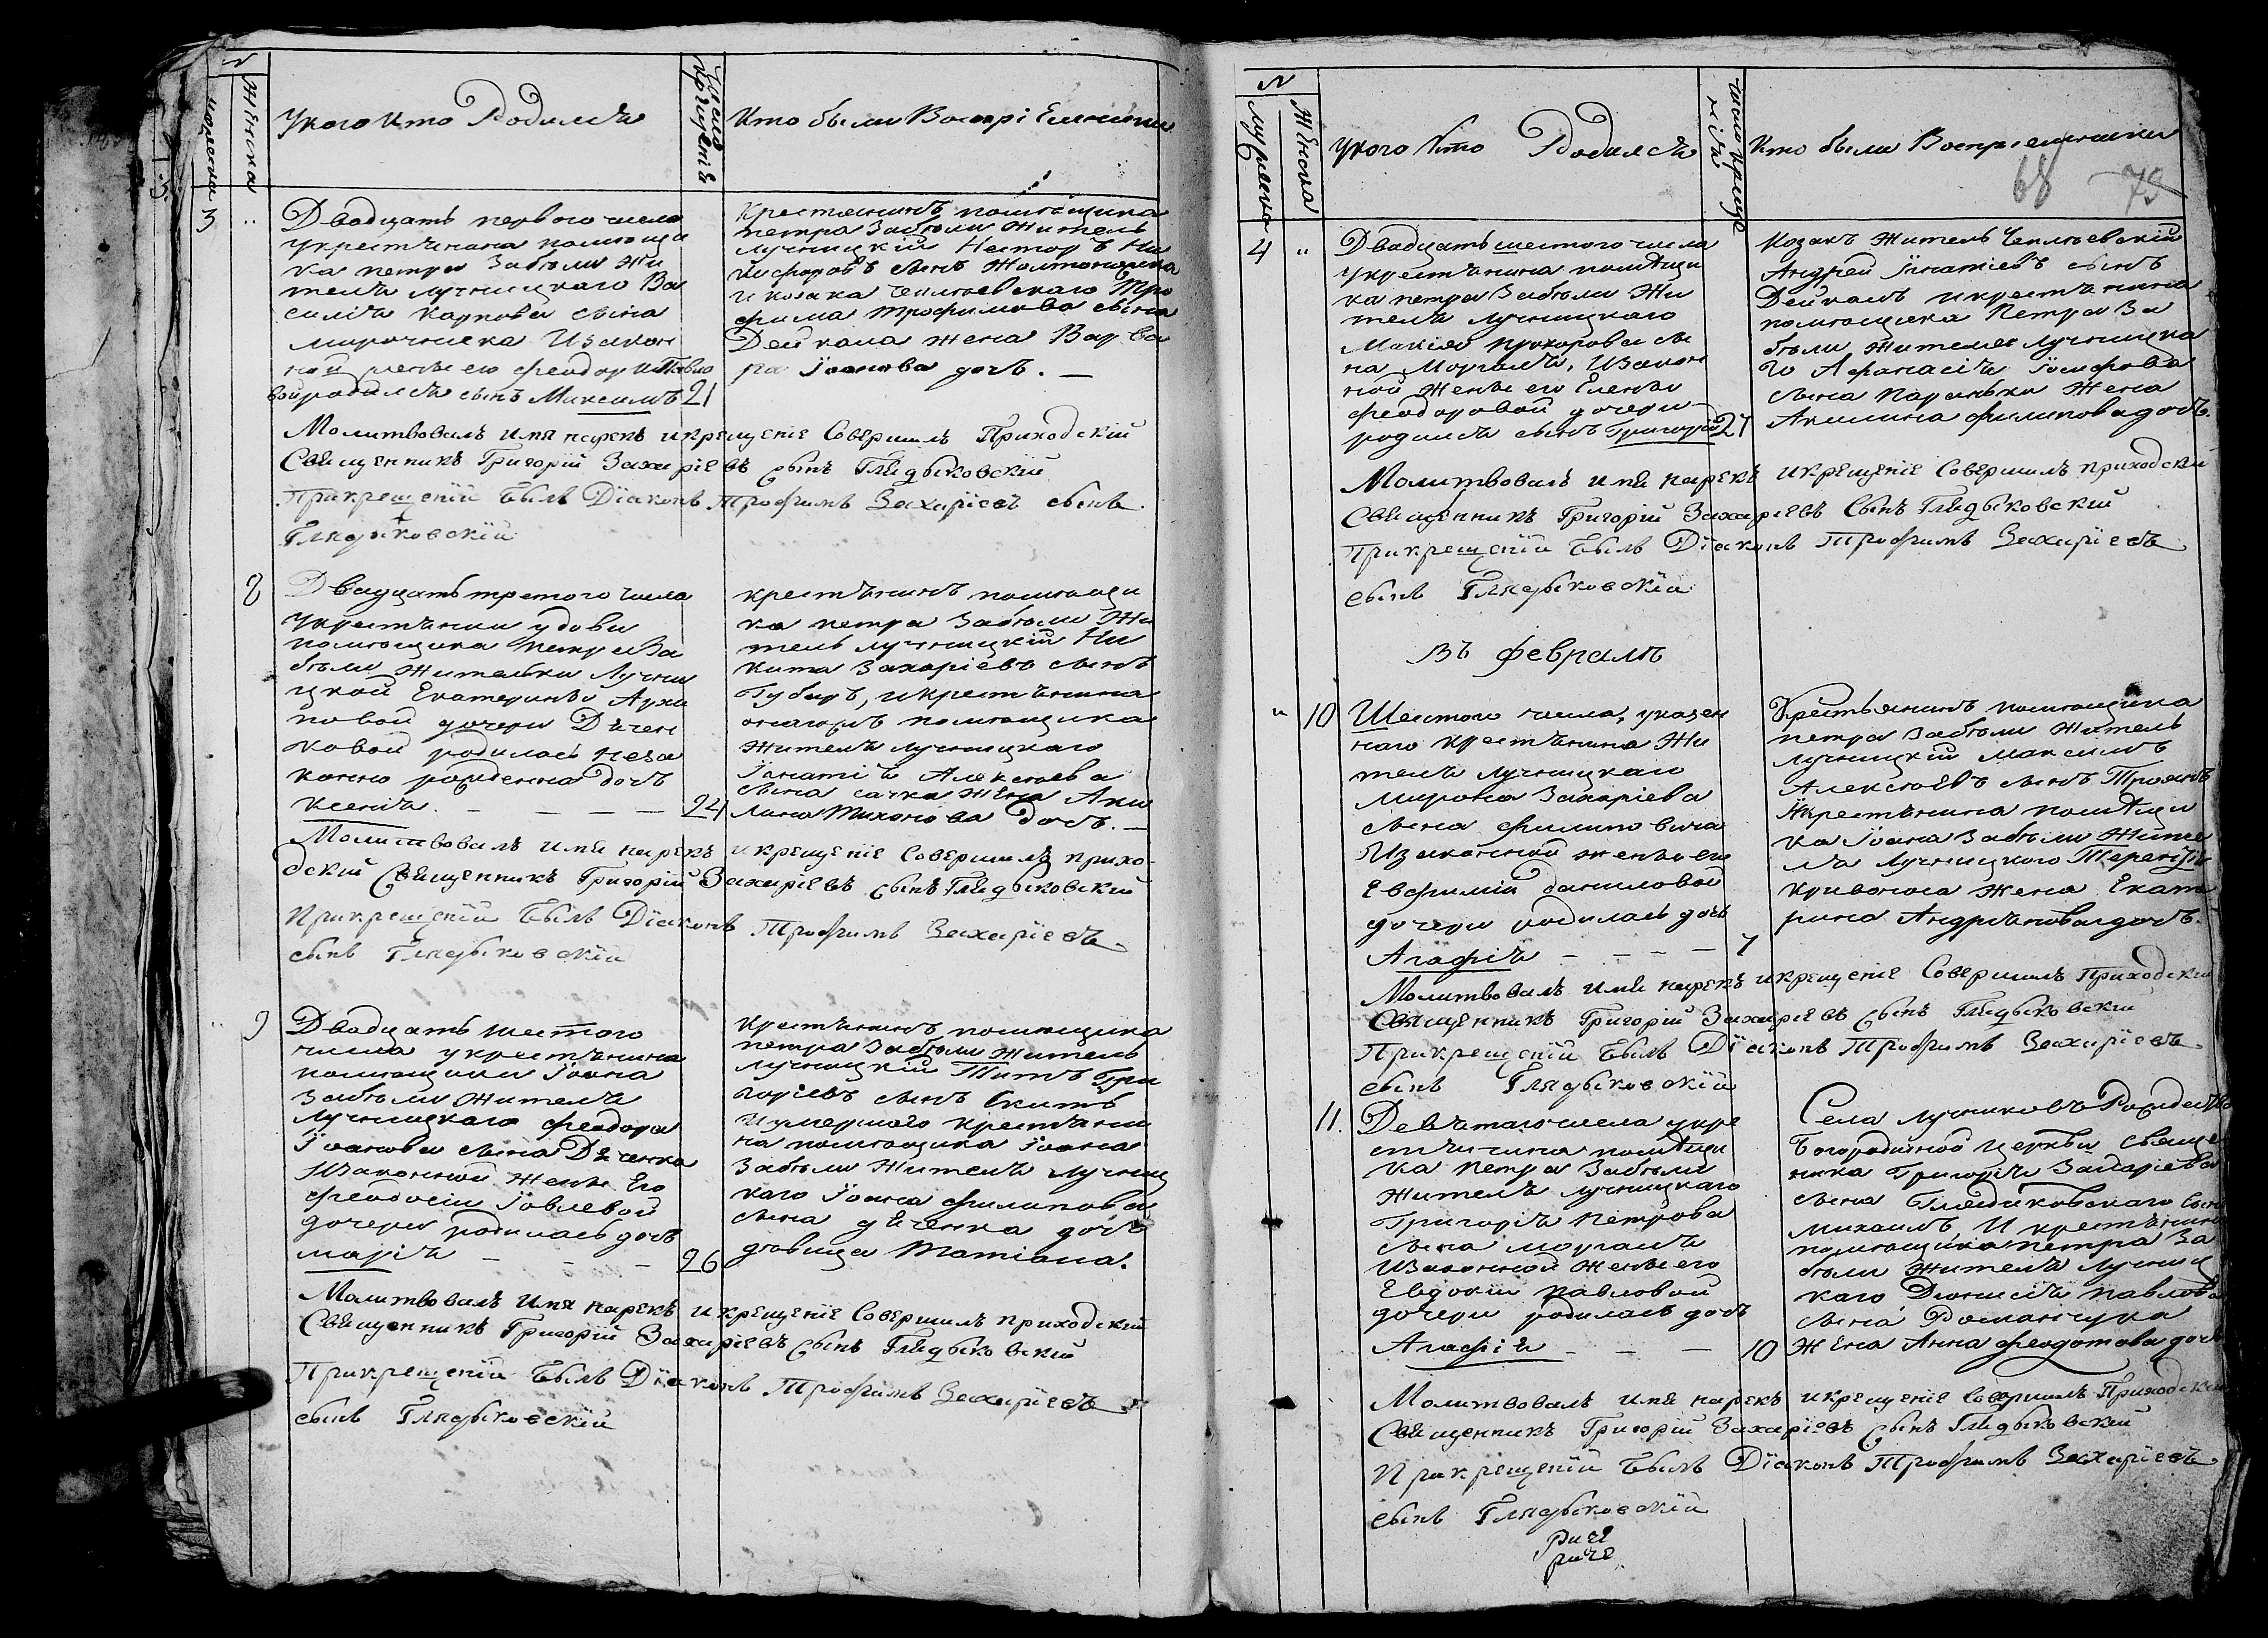 N
мужеска
женска
У кого кто Родился
Число крещенія
Кто были Воспріемники
3
Двадцать первого числа
у крестянина помѣщи
ка петра Забѣлы Жи
теля лучницкаго Ва
силія Карпова сына
мирочника Изакон
ной жены его феодори Павло
вой родился сынъ Максимъ 21
крестянинъ помѣщика
петра Забѣлы Житель
лучницкій Несторъ Ни
кифоровъ сынъ
и козака чеплѣевскаго Тро
фима трофимова сына
Дейкала жена Варва
ра Іоанова дочь. —
Молитвовалъ имя нарекъ и крещеніе Совершилъ Приходскій
Священникъ Григорій Захаріевъ сынъ Глядыковскій
При крещеніи былъ Діаконъ Трофимъ Захаріевъ сынъ
Глядыковскій
8
Двадцать третого числа
у крестянки удови
помѣщика петра За
бѣлы жителки Лучни
цкой Екатерины Архи
повой дочери Дячен
ковой родилась неза
конно рожденна дочь
Ксенія. — — — — 24
крестянинъ помѣщи
ка петра Забѣлы Жи
тель лучницкій Ни
кита Захаріевъ сынъ
Губаръ, и крестянина
оногожъ помѣщика
жителя лучницкаго
Ігнатія Алексѣева
сына сачка жена Аки
лина Тихонова дочь. —
Молитвовалъ имя нарекъ и крещеніе Совершилъ прихо-
дскій Священникъ Григорій Захаріевъ сынъ Глядыковскій
При крещеніи былъ Діаконъ Трофимъ Захаріевъ
сынъ Глядыковскій
9
Двадцать шестого
числа у крестянина
помѣщика Іоана
Забѣлы жителя
Лучницкаго феодора
Іоанова сына Дяченка
Изаконной жены Его
Феодосіи Іовлевой
дочери родилась дочь
марія — — — 26
крестянинъ помѣщика
петра Забѣлы житель
лучницкій Титъ Гри
горіевъ сынъ Скитъ
и умершого крестяни
на помѣщика Іоана
Забѣлы жителя лучниц
каго Іоана филипова
сына дяченка дочь
дѣвица Татіана.
Молитвовалъ имя нарекъ и крещеніе Совершилъ приходскій
Священникъ Григорій Захаріевъ сынъ Глядыковскій
При крещеніи былъ Діаконъ Трофимъ Захаріевъ
сынъ Глядыковскій
N
мужеска
Женска
У кого Кто Родился
число крещенія
Кто были Воспріемники
68 79
4
Двадцать шестого числа
у крестянина помѣщи
ка петра Забѣлы Жи
теля Лучницкаго
Прохорова сы
на Моргаля, Изакон
ной Жены его Елены
феодоровой дочери
родился сынъ Григорій 27
Козакъ житель Чеплѣевскій
Андрей Ігнатіевъ сынъ
Дейкалъ и крестянина
помѣщика Петра За
бѣлы жителя лучницка
го Афанасія Іосифова
сына жена
Акилина филипова дочь.
Молитвовалъ имя нарекъ и крещеніе Совершилъ приходскій
Священникъ Григорій Захаріевъ Сынъ Глядыковскій
При крещеніи былъ Діаконъ Трофимъ Захаріевъ
сынъ Глядыковскій
Въ февралѣ
10
Шестого числа, у казен
наго крестянина Жи
теля лучницкаго
Мирона Захаріева
сына филиповича
Изаконной жены его
Евфиміи даниловой
дочери родилась дочь
Агафія — — — 7
Крестьянинъ помѣщика
петра Забѣлы житель
лучницкій Максимъ
Алексѣевъ сынъ Троянъ
и крестянина помѣщи
ка Іоана Забѣлы Жите
ля Лучницкого Терентія
кривоноса жена Екате
рина Андріанова дочь.
Молитвовалъ имя нарекъ и крещеніе Совершилъ Приходскій
Священникъ Григорій Захаріевъ сынъ Глядыковскій
При крещеніи былъ Діаконъ Трофимъ Захаріевъ
сынъ Глядыковскій
11.
Девятаго числа у кре
стянина помѣщи
ка петра Забѣлы
жителя лучницкаго
Григорія петрова
сына моргаля
Изаконной жены его
Евдокіи павловой
дочери родилась дочь
Агафія — — — 10
Села Лучниковъ Рождество
Богородичной церкви священ
ника Григорія Захаріева
сына Глядиковскаго сынъ
михаилъ и крестянина
помѣщика петра За
бѣлы жителя Лучниц
каго Діонисія павлова
сына Романчука
жена Анна феодотова дочь
Молитвовалъ имя нарекъ и крещеніе Совершилъ Приходскій
Священникъ Григорій Захаріевъ сынъ Глядыковскій
При крещеніи былъ Діаконъ Трофимъ Захаріевъ
сынъ Глядыковскій